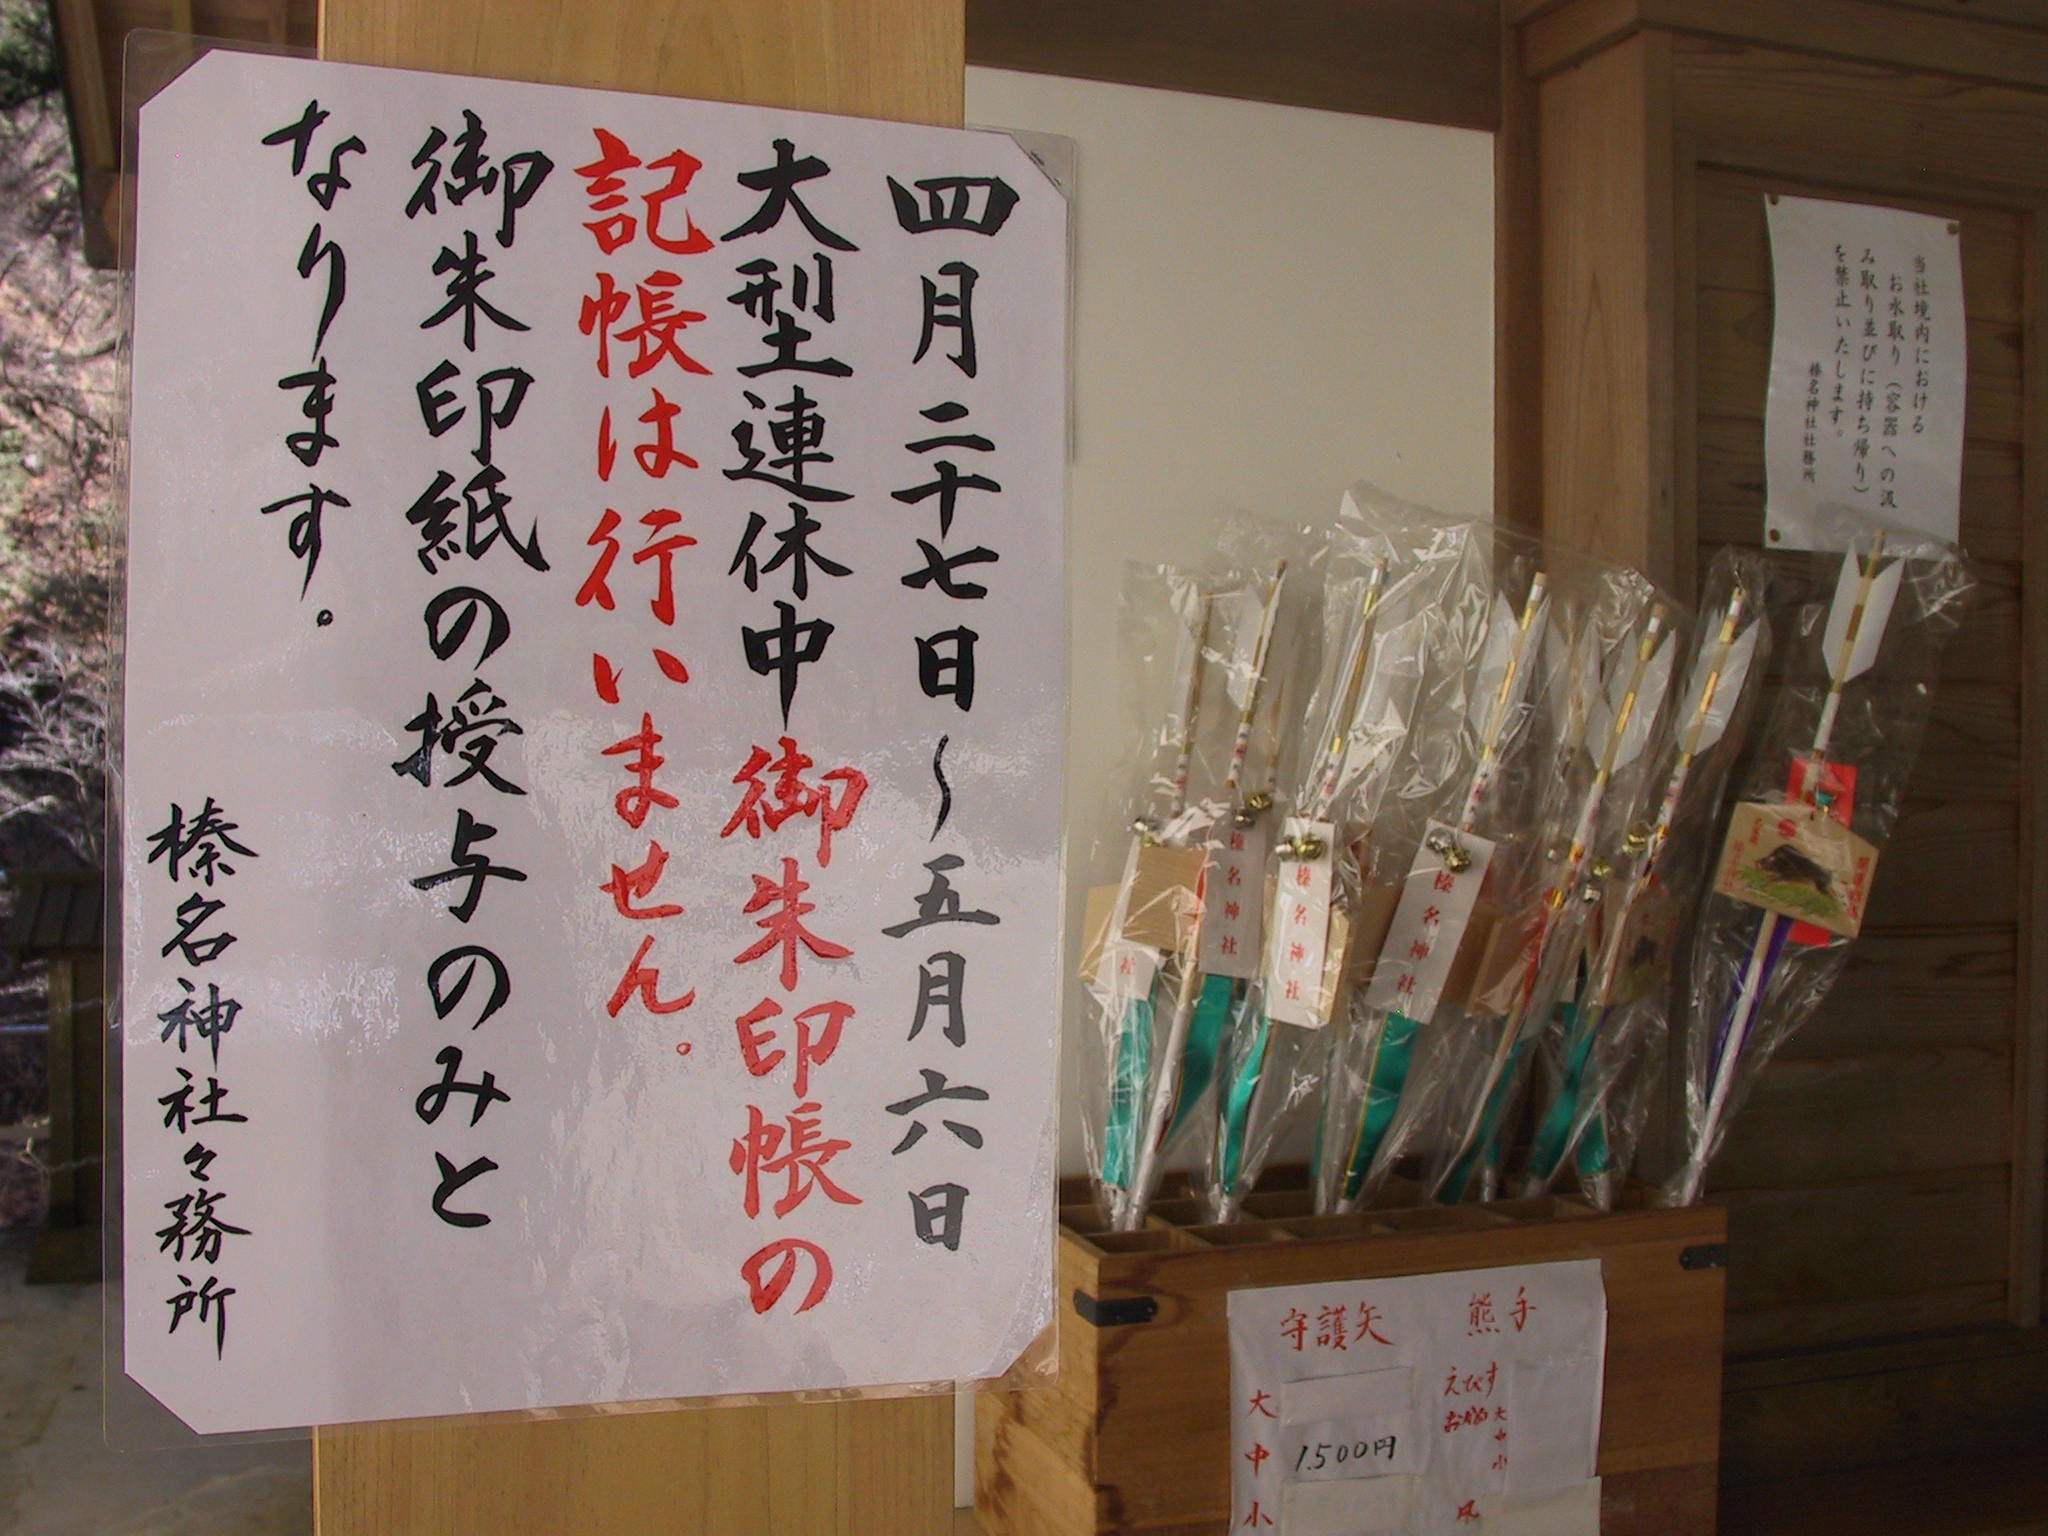 四月二十七日〜五月六日
大型連休中御朱印帳の
記帳は行いません。
御朱印紙の授与のみと
なります。
榛名神社々務所
当社境内における
お水取り（容器への汲
み取り並びに持ち帰り）
を禁止いたします。
榛名神社社務所
社
榛名神社
榛名神社
榛名神社
守護矢
大
中 1,500円
小
熊手
えびす
おかめ 大中小